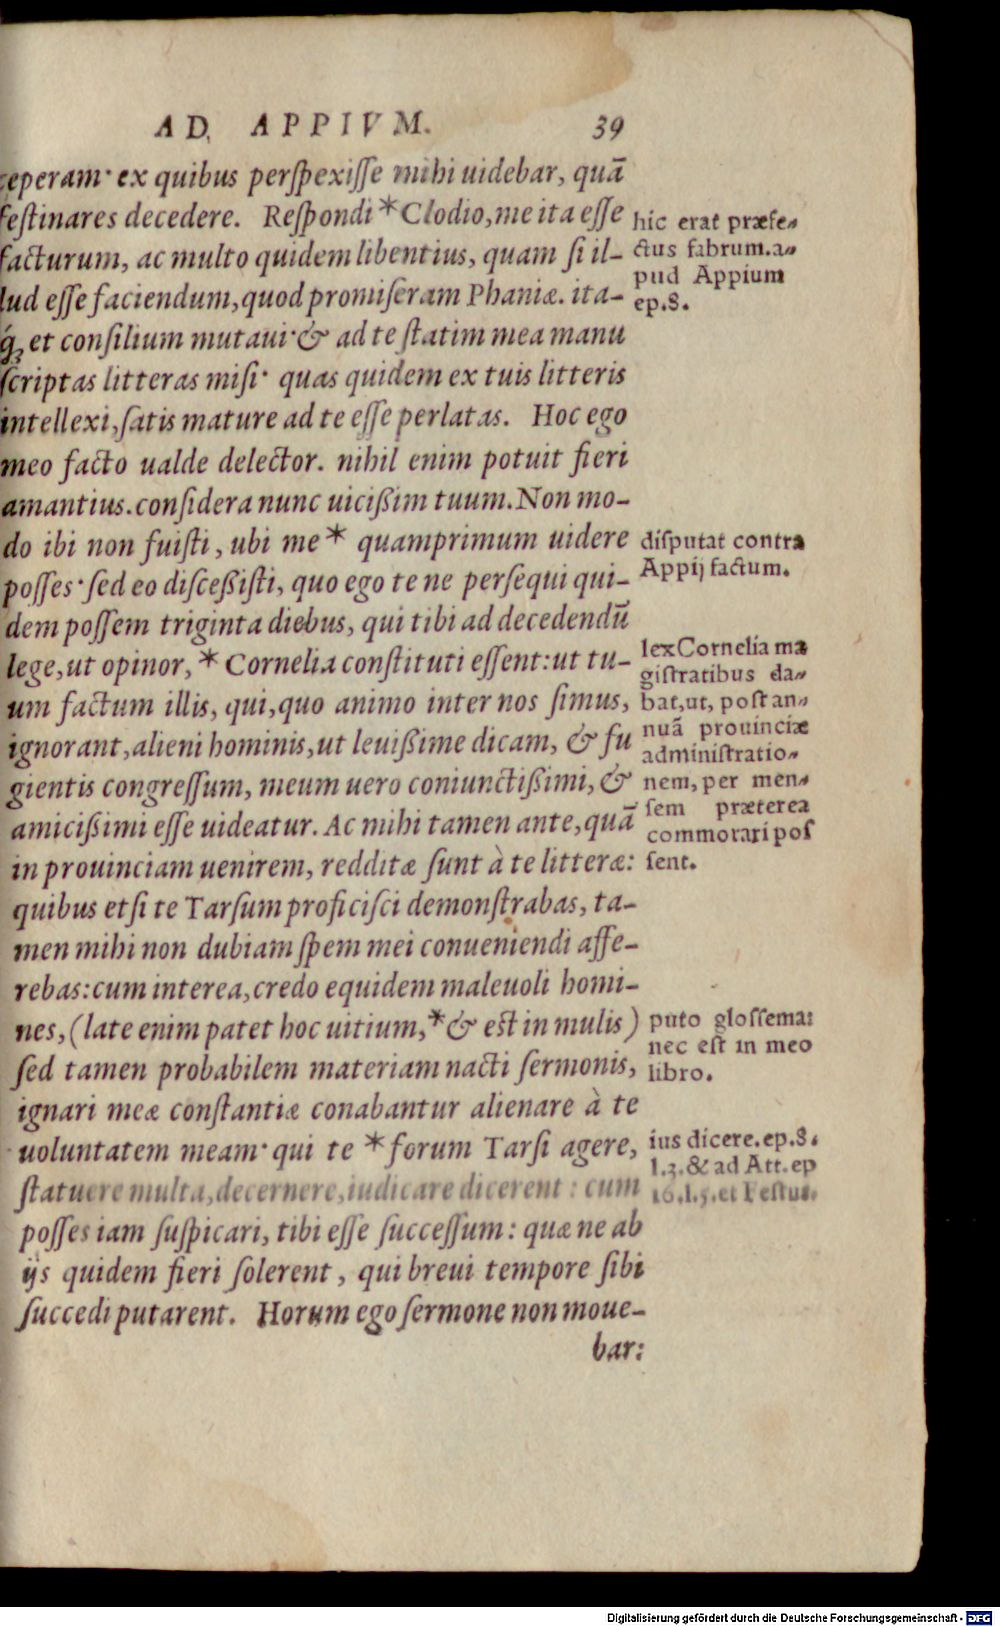 AD APPIVM. 39
ceperam· ex quibus perspexisse mihi uidebar, quã
festinares decedere. Respondi *Clodio, me ita esse
facturum, ac multo quidem libentius, quam si il-
lud esse faciendum, quod promiseram Phaniæ. ita-
q́ꝫ et consilium mutaui· & ad te statim mea manu
scriptas litteras misi· quas quidem ex tuis litteris
intellexi, satis mature ad te esse perlatas. Hoc ego
meo facto ualde delector. nihil enim potuit fieri
amantius. considera nunc uicißim tuum. Non mo-
do ibi non fuisti, ubi me * quamprimum uidere
posses· sed eo disceßisti, quo ego te ne persequi qui-
dem possem triginta diebus, qui tibi ad decedendũ
lege, ut opinor, * Cornelia constituti essent: ut tu-
um factum illis, qui, quo animo inter nos simus,
ignorant, alieni hominis, ut leuißime dicam, & fu
gientis congressum, meum uero coniunctißimi, &
amicißimi esse uideatur. Ac mihi tamen ante, quã
in prouinciam uenirem, redditæ sunt à te litteræ:
quibus etsi te Tarsum proficisci demonstrabas, ta-
men mihi non dubiam spem mei conueniendi affe-
rebas: cum interea, credo equidem maleuoli homi-
nes, (late enim patet hoc uitium, *& est in mulis)
sed tamen probabilem materiam nacti sermonis,
ignari meæ constantiæ conabantur alienare à te
uoluntatem meam· qui te *forum Tarsi agere,
statuere multa, decernere, iudicare dicerent: cum
posses iam suspicari, tibi esse successum: quæ ne ab
ijs quidem fieri solerent, qui breui tempore sibi
succedi putarent. Horum ego sermone non moue-
bar:
hic erat præfe-
ctus fabrum. a-
pud Appium
ep. 8.
disputat contra
Appij factum.
lex Cornelia ma
gistratibus da-
bat, ut, post an-
nuã prouinciæ
administratio-
nem, per men-
sem præterea
commorari pos
sent.
puto glossema:
nec est in meo
libro.
ius dicere. ep. 8.
l. 3. & ad Att. ep
16. l. 5. et Festus.
Digitalisierung gefördert durch die Deutsche Forschungsgemeinschaft - DFG